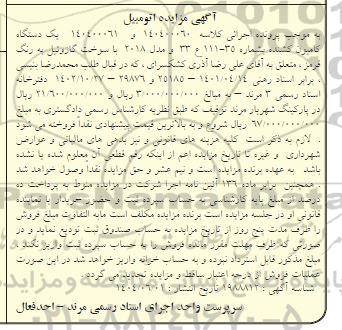 آگهی مزایده اتومبیل
به موجب پرونده اجرائی کلاسه ۱۴۰۴۰۰۰۶۰ و ۱۴۰۴۰۰۰۶۱ یک دستگاه
کامیون کشنده بشماره ۳۵-۱۱۱ ع ۳۳ و مدل ۲۰۱۸ با سوخت گازوئیل به رنگ
قرمز ، متعلق به آقای علی رضا آذری کشکسرای ، که در قبال طلب محمدرضا بنیسی
، برابر اسناد رهنی ۱۴۰۱/۰۴/۱۴ – ۲۵۱۸۵ و ۲۹۸۷۶ – ۱۴۰۲/۱۰/۲۷ دفترخانه
اسناد رسمی ۳ مرند – به مبالغ ۳/۰۰۰/۰۰۰/۰۰۰ ریال و ۲۱/۶۰۰/۰۰۰/۰۰۰ ریال
در پارکینگ شهریار مرند توقیف که طبق نظریه کارشناس رسمی دادگستری به مبلغ
۶۷/۰۰۰/۰۰۰/۰۰۰ ریال شروع و به بالاترین قیمت پیشنهادی نقدا فروخته می شود
. لازم به ذکر است کلیه هزینه های قانونی و نیز بدهی های مالیاتی و عوارض
شهرداری و غیره تا تاریخ مزایده اعم از اینکه رقم قطعی آن معلوم شده یا نشده
باشد به عهده برنده مزایده است و نیم عشر و حق مزایده نقدا وصول خواهد شد
. همچنین برابر ماده ۱۳۶ آئین نامه اجرا شرکت در مزایده منوط به پرداخت ده
درصد از مبلغ پایه کارشناسی به حساب سپرده ثبت و حضور خریدار یا نماینده
قانونی او در جلسه مزایده است برنده مزایده مکلف است مابه التفاوت مبلغ فروش
را ظرف مدت پنج روز از تاریخ مزایده به حساب صندوق ثبت تودیع نماید و در
صورتی که ظرف مهلت مقرر مانده فروش را به حساب سپرده ثبت واریز نکند ،
مبلغ مذکور قابل استرداد نبوده و به حساب خزانه واریز خواهد شد در این صورت
عملیات فروش از درجه اعتبار ساقط و مزایده تجدید می گردد.
شناسه آگهی : ۱۹۸۸۸۱۲ تاریخ انتشار : ۱۴۰۴/۰۶/۰۱
سرپرست واحد اجرای اسناد رسمی مرند – احدفعال